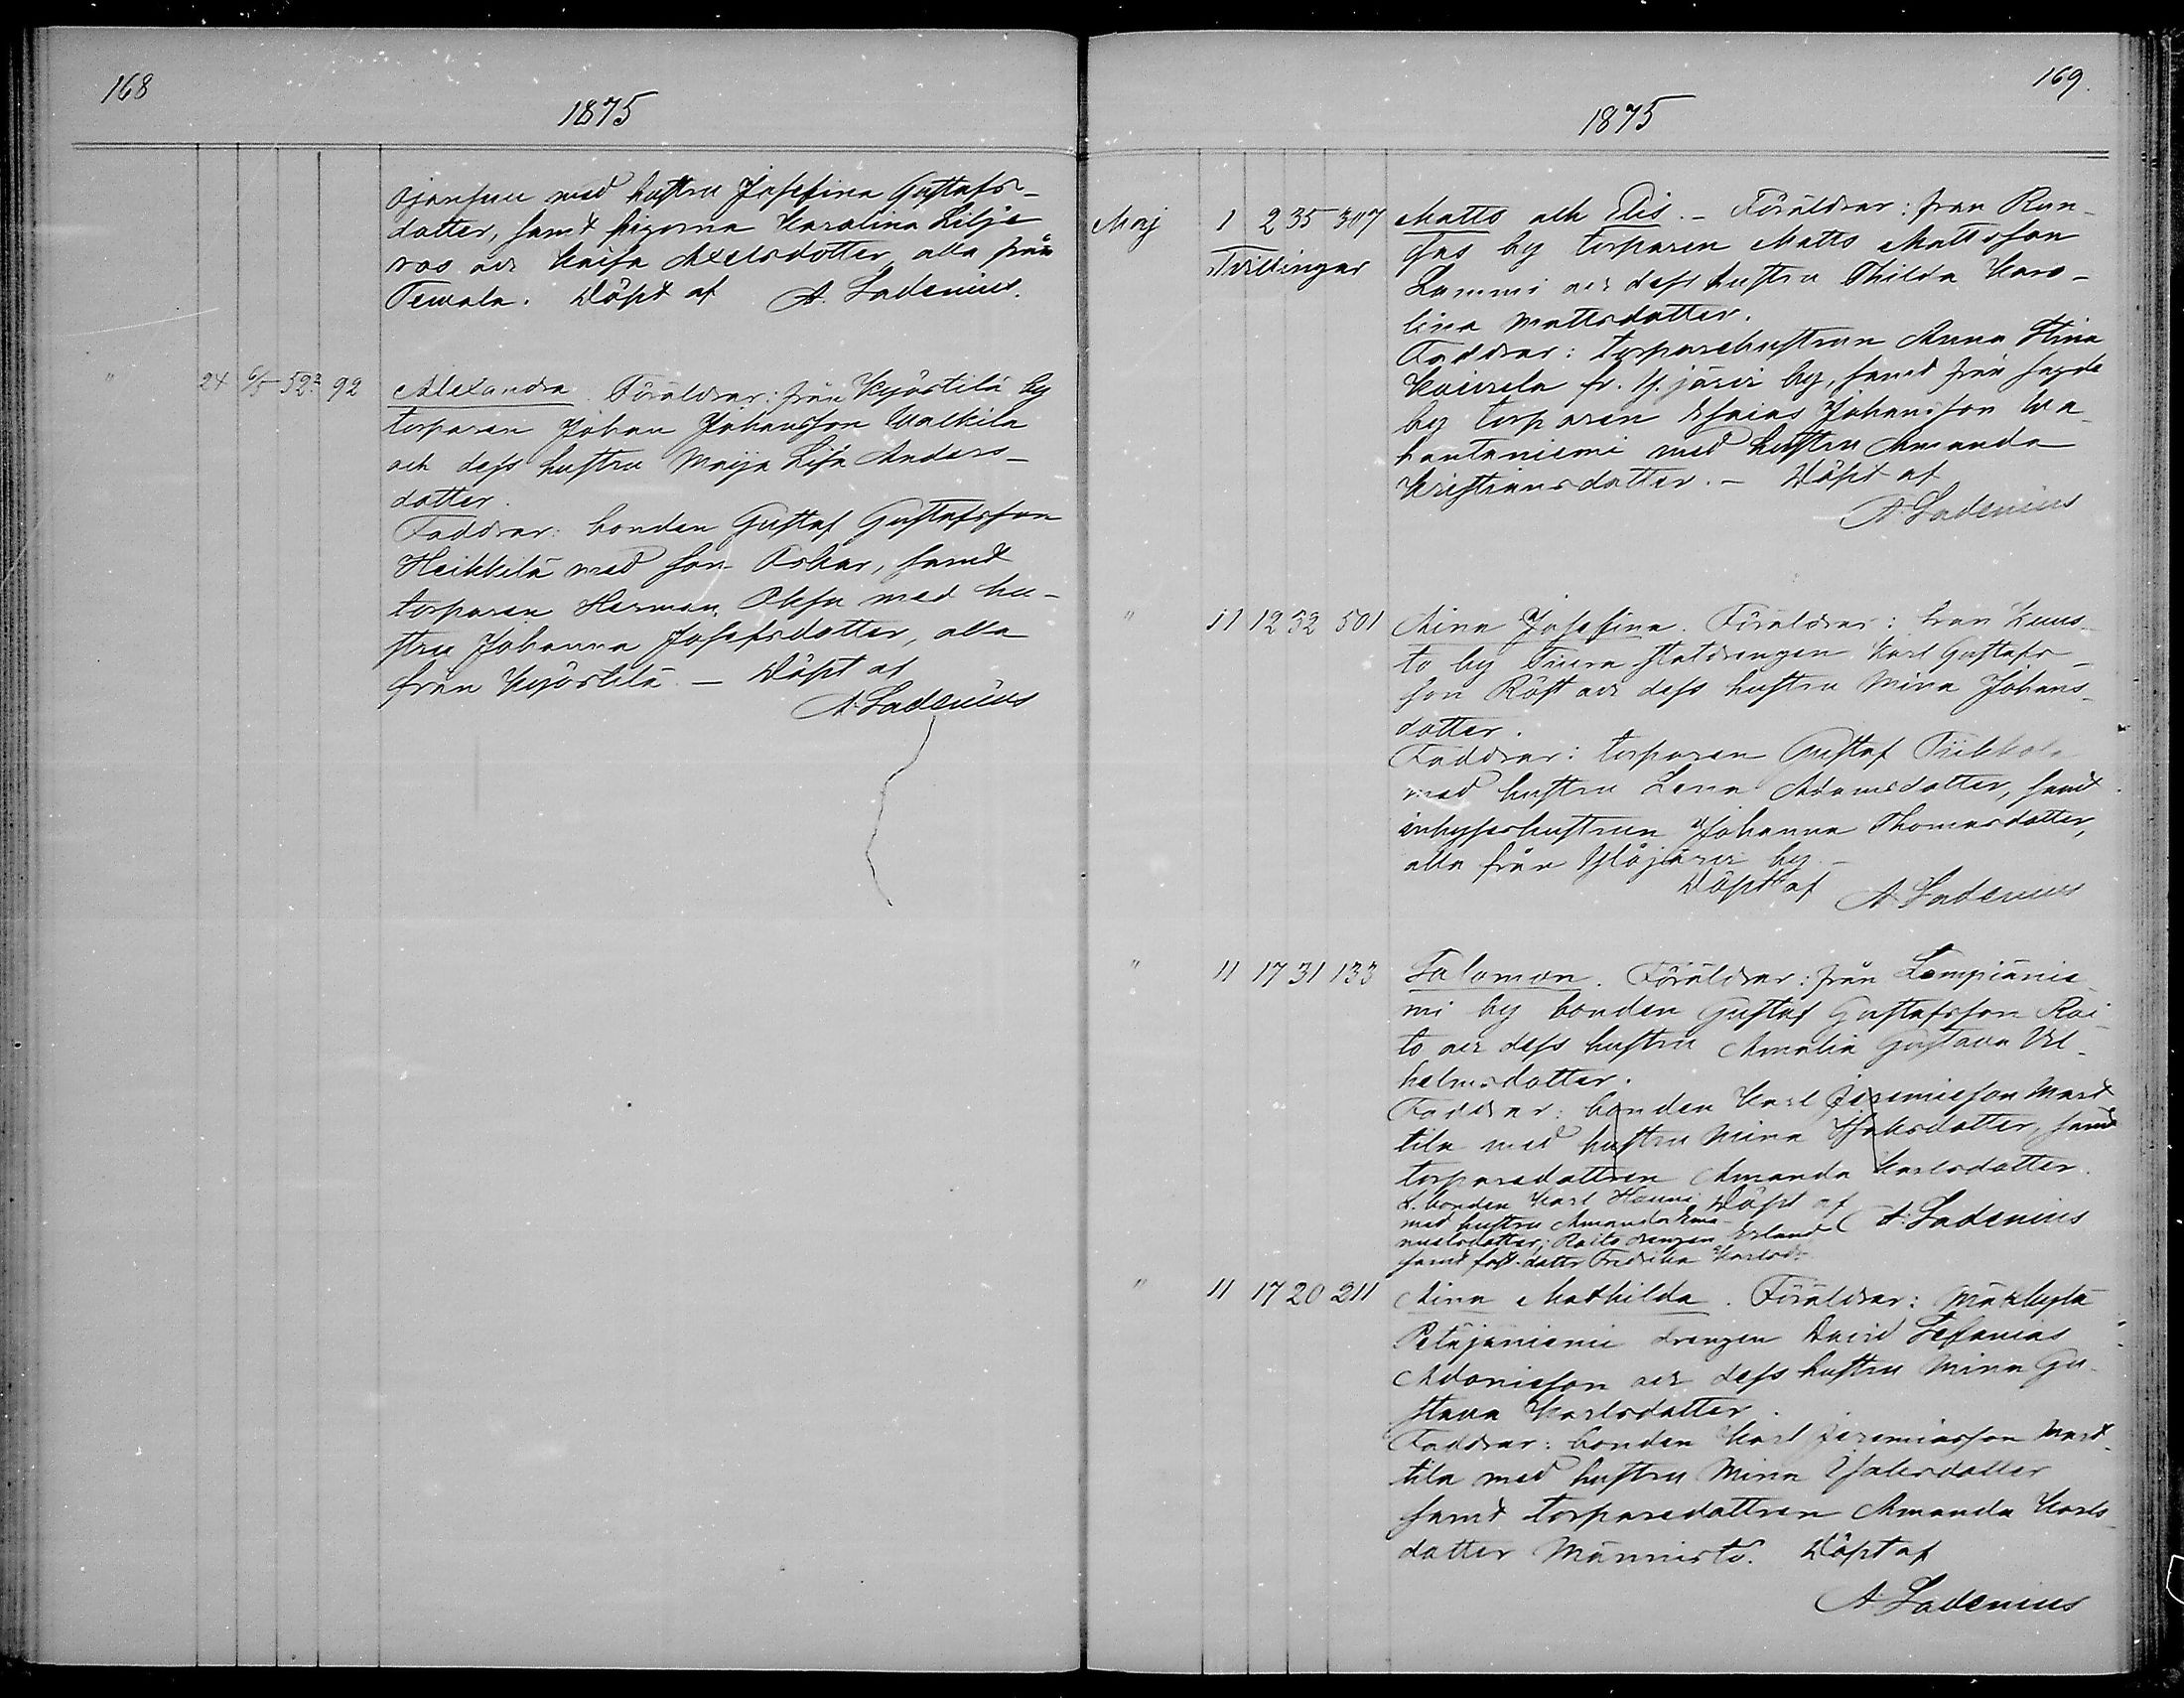 168
1875
med hustru Josefina Gustafs-
dotter, samt pigorna Karolina Lilje
roo och Kaisa Axelsdotter, alla från
Temala. Döpt af A. Ladenius.
" 24 6/5 52 2 92 Alexandra. Föräldrar: från Kyöstilä by
torparen Johan Johansson Walkila
och dess hustru Maija Lisa Anders-
dotter.
Faddrar: bonden Gustaf Gustafsson
Heikkilä med son Oskar, samt
torparen Herman Oksa med hu-
stru Johanna Josefsdotter, alla
från Kyöstilä. - Döpt af
A. Ladenius
169.
1875
Maj 1 2 35 307 Matts och Elis. - Föräldrar: från Run-
Tvillingar sas by torparen Matts Mattsson
Lammi och dess hustru Thilda Karo-
lina Mattsdotter.
Faddrar: torparehustrun Anna Stina
Koivula fr. Y. järvi by, samt från sagde
by torparen Esaias Johansson Wa-
hantaniemi med hustru Amanda
Kristiansdotter. - Döpt af
A. Ladenius
" 11 12 32 501 Aina Josefina. Föräldrar: från Kuus-
to by Tiura statdrengen Karl Gustafs-
son Röst och dess hustru Mina Johans-
dotter.
Faddrar: torparen Gustaf Tiikkala
med hustru Lena Adamsdotter, samt
inhyseshustrun Johanna Thomasdotter,
alla från Ylöjärvi by. -
Döpt af A. Ladenius
" 11 17 31 133 Salomon. Föräldrar: från Lempiänie-
mi by bonden Gustaf Gustafsson Rai-
to och dess hustru Amalia Gustava Vil-
helmsdotter.
Faddrar: bonden Karl Jeremiesson Mart
tila med hustru Mina Isaksdotter, samt
torparedottren Amanda Karlsdotter.
bonden Karl Hanni Döpt af
med hustru Amanda Ema- A. Ladenius
nuelsdotter; Raito drengen Erland
samt dotter Fredrika Karlsdr
" 11 17 20 211 Aina Mathilda. Föräldrar: Mäxkylä
Petäjäniemi drengen David Sefanias
Adoniesson och dess hustru Mina Gu-
stava Karlsdotter.
Faddrar: bonden Karl Jeremiasson Mart-
tila med hustru Mina Isaksdotter
samt torparedottren Amanda Karls-
dotter Männistö. Döpt af
A. Ladenius